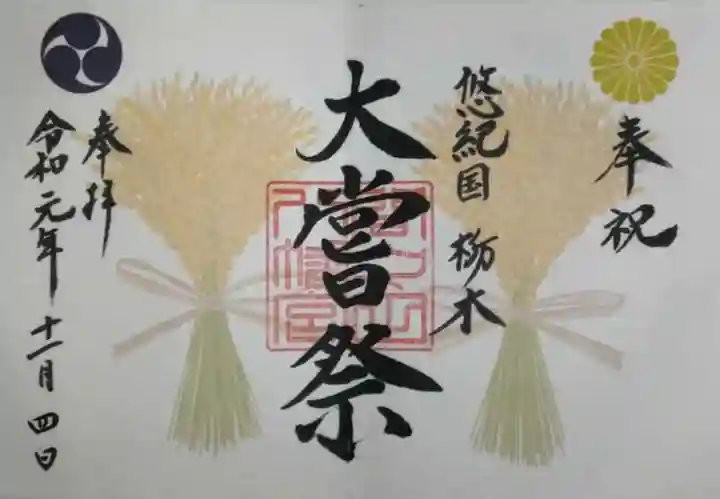 奉祝
悠紀国 栃木
大嘗祭
奉拝
令和元年 十一月 四日